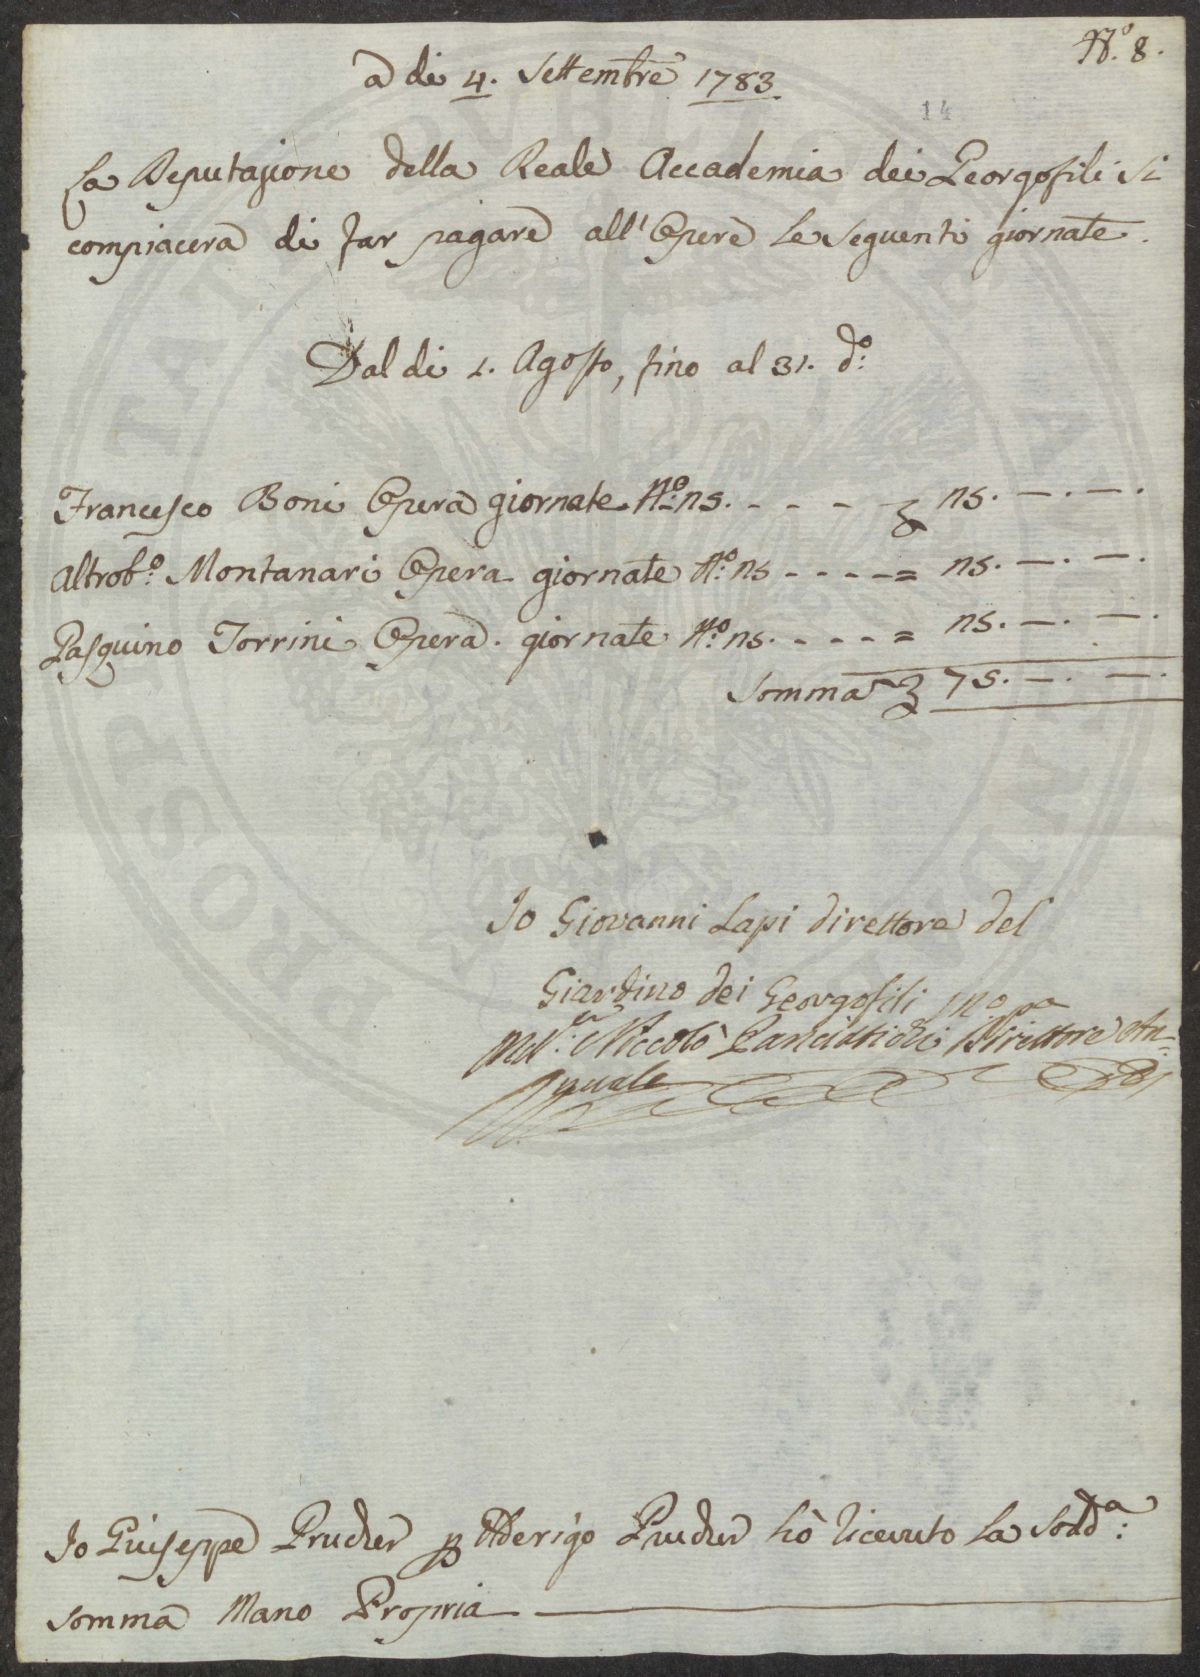 N.º 8.
a di 4. Settembre 1783
14
La Deputazione della Reale Accademia dei Georgofili si
compiacerà di far pagare all' Opere le seguenti giornate.
Dal di 1. Agosto, fino al 31. dº:
Francesco Boni Opera giornate Nº: 25. - - - - £ 25. —. —.
Altrobº: Montanari Opera giornate Nº: 25 - - - - = 25. —. —.
Pasquino Torrini Opera. giornate Nº: 25. - - - - = 25. —. —.
Somma £ 75. —. —.
Io Giovanni Lapi direttore del
Giardino dei Georgofili mo pa
Niccolò Panciatichi Direttore An=
nuale
Io Giuseppe Prucher p Federigo Prucher hò ricevuto la Sodda:
Somma Mano Propria
PROSPERITATI PUBLICAE AUGENDAE